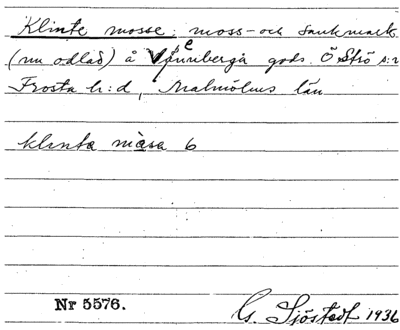 Klinte mosse: moss- och sankmark
(nu odlad) å Vpnneberga gods. Ö. Strö s:n
Frosta h:d, Malmöhus län
klinta måsa 6
Nr 5576.
G. Sjöstedt 1936